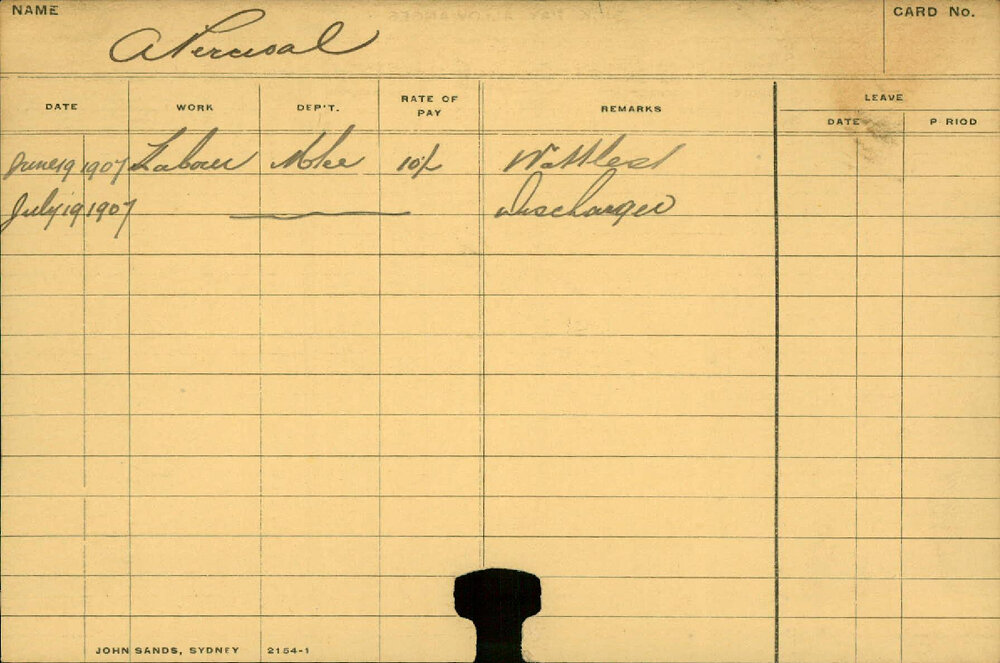 NAME
A Percival
CARD No.
DATE WORK DEP'T. RATE OF PAY REMARKS LEAVE
DATE P RIOD
June 19 1907 Labour 10/- 
July 19 1907 Discharged
JOHN SANDS, SYDNEY 2154-1